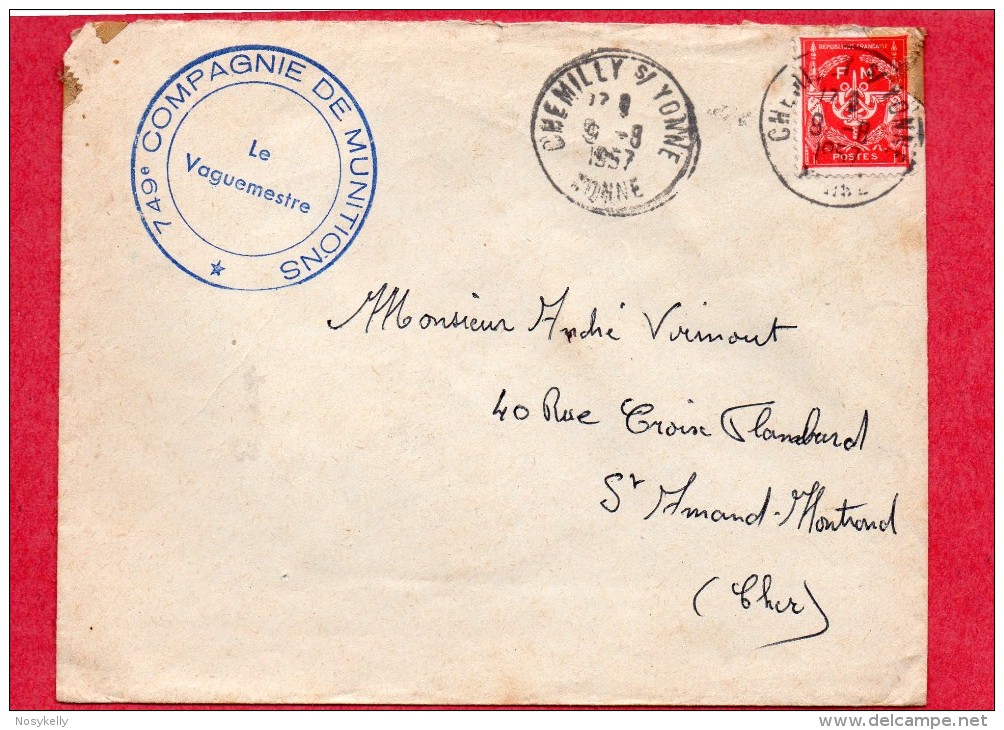 749e COMPAGNIE DE MUNITIONS
Le
Vaguemestre
CHEMILLY S/ YONNE
9 -8
1957
YONNE
REPUBLIQUE FRANÇAISE
F M
POSTES
Monsieur André Voimout
40 Rue Croix Flambard
St Amand-Montrond
(Cher)
Nosykelly
www.delcampe.net